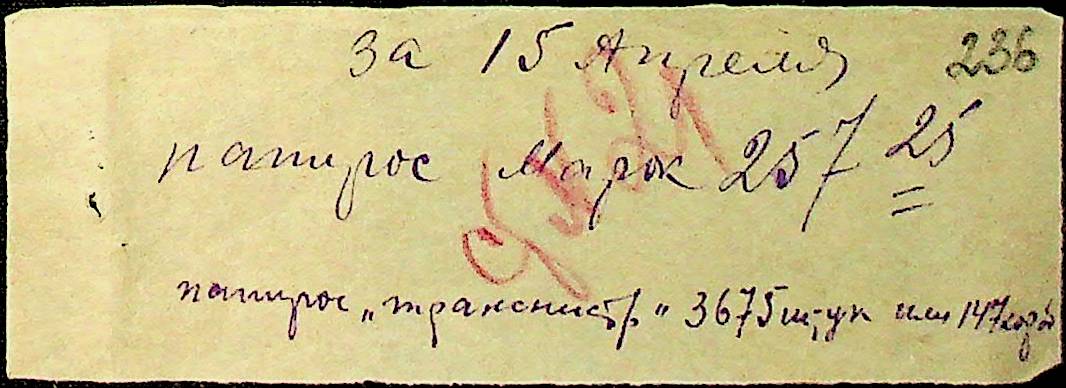 за 15 Апреля 236
папирос Марок 257 25
папирос „транснистр" 3675 штук или 147 короб